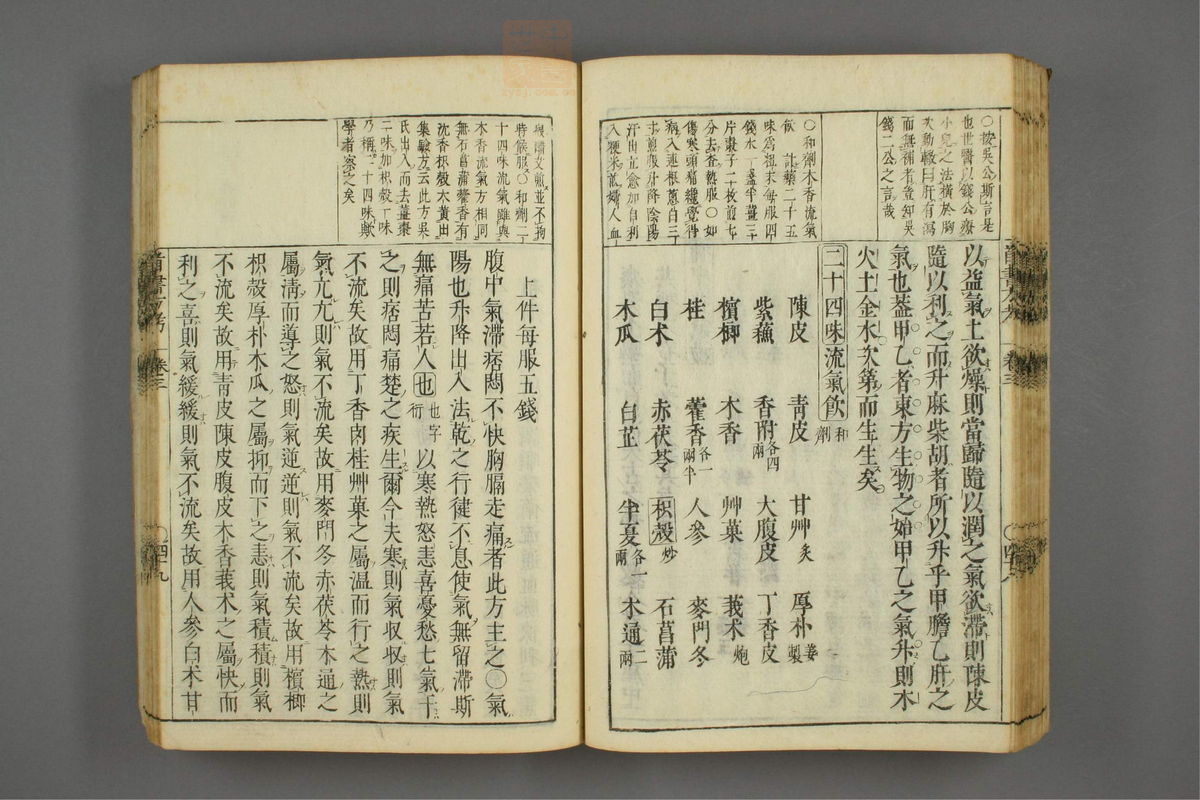 ○按吳公斯言是
也世醫以錢公療
小兒之法橫於胸
次動輙曰肝有瀉
而無補者豈知吳
錢二公之言哉
○和劑木香流氣
飲 計藥二十五
味爲粗末每服四
錢水一盞半薑三
片棗子二枚煎七
分去查熱服○如
傷寒頭痛纔覺得
病入連根蔥白三
寸煎服升降陰陽
汗出立愈加自利
入粳米
以益氣土欲燥則當歸隨以潤之氣欲滯則陳皮
隨以利之而升麻柴胡者所以升乎甲膽乙肝之
氣也葢甲乙者東方生物之始甲乙之氣升則木
火土金水次第而生生矣
二十四味流氣飲 和劑
陳皮 青皮 甘艸炙 厚朴姜製
紫蘓 香附各四兩 大腹皮 丁香皮
檳榔 木香 艸菓 莪术炮
桂 藿香各一兩半 人參 麥門冬
白术 赤茯苓 枳殼炒 石菖蒲
木瓜 白芷 半夏各一兩 木通二兩
時候服○和劑二
十四味流氣雖與
木香流氣方相同
無石菖蒲藿香有
沈香枳殼大黄出
集驗方云此方吳
氏出入而去薑棗
二味加枳殼一味
乃稱二十四味歟
學者察之矣
上件每服五錢
腹中氣滯痞悶不快胸膈走痛者此方主之○氣
陽也升降出入法乾之行健不息使氣無留滯斯
無痛苦若人也也字衍以寒熱怒恚喜憂愁七氣干
之則痞悶痛楚之疾生爾今夫寒則氣收收則氣
不流矣故用丁香肉桂艸菓之屬温而行之熱則
氣亢亢則氣不流矣故用麥門冬赤茯苓木通之
屬清而導之怒則氣逆逆則氣不流矣故用檳榔
枳殼厚朴木瓜之屬抑而下之恚則氣積積則氣
不流矣故用青皮陳皮腹皮木香莪术之屬快而
利之喜則氣緩緩則氣不流矣故用人參白术甘
卷三
卷三